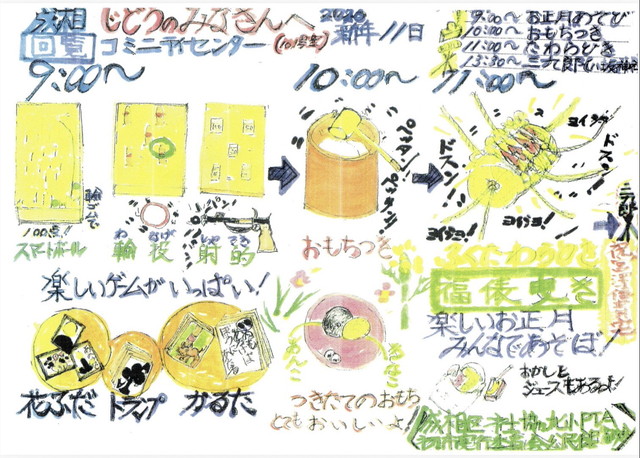 成相 じどうのみなさんへ 2020
回覧 コミニティセンター (101号室) 新年 11日
9:00～ お正月あそび
10:00～ おもちつき
11:00～ たわらひき
13:30～ 三九郎
9:00～
10:00～
11:00～
ペッタン ペッタン
ヨイショ! ヨイショ! ヨイショ! ヨイショ!
ドスン ドスン
三九郎
100号!
スマートボール
輪ゴムで
わ なげ
輪投
パン
しゃ てき
射的
おもちつき
ふくたわらひき
福俵曳き
楽しいゲームがいっぱい!
あんこ
花ふだ トランプ かるた
つきたてのおもち
とてもおいしいよ!
楽しいお正月
みんなであそぼ!
おかしと
ジュースもあるよ!